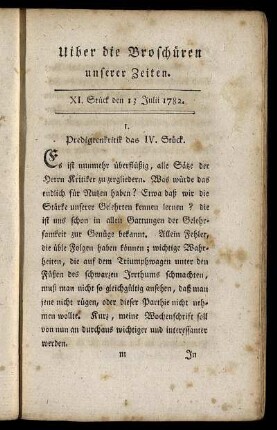 Uiber die Broschüren
unserer Zeiten.
XI. Stück den 13 Julii 1782.
I.
Predigtenkritik das IV. Stück.
Es ist nunmehr überflüßig, alle Sätze der
Herrn Kritiker zu zergliedern. Was würde das
endlich für Nutzen haben? Etwa daß wir die
Stärke unserer Gelehrten kennen lernen? die
ist uns schon in allen Gattungen der Gelehr-
samkeit zur Genüge bekannt. Allein Fehler,
die üble Folgen haben können; wichtige Wahr-
heiten, die auf dem Triumphwagen unter den
Füßen des schwarzen Irrthums schmachten,
muß man nicht so gleichgültig ansehen, daß man
jene nicht rügen, oder dieser Parthie nicht neh-
men wollte. Kurz, meine Wochenschrift soll
von nun an durchaus wichtiger und interessanter
werden.
m In